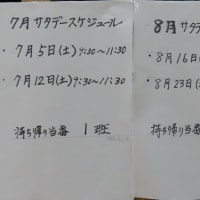 7月 サタデースケジュール
・7月5日(土) 9:30〜11:30
・7月12日(土) 9:30〜11:30
持ち帰り当番 1班
8月 サタデ
・8月16日
・8月23日(土
持ち帰り当番